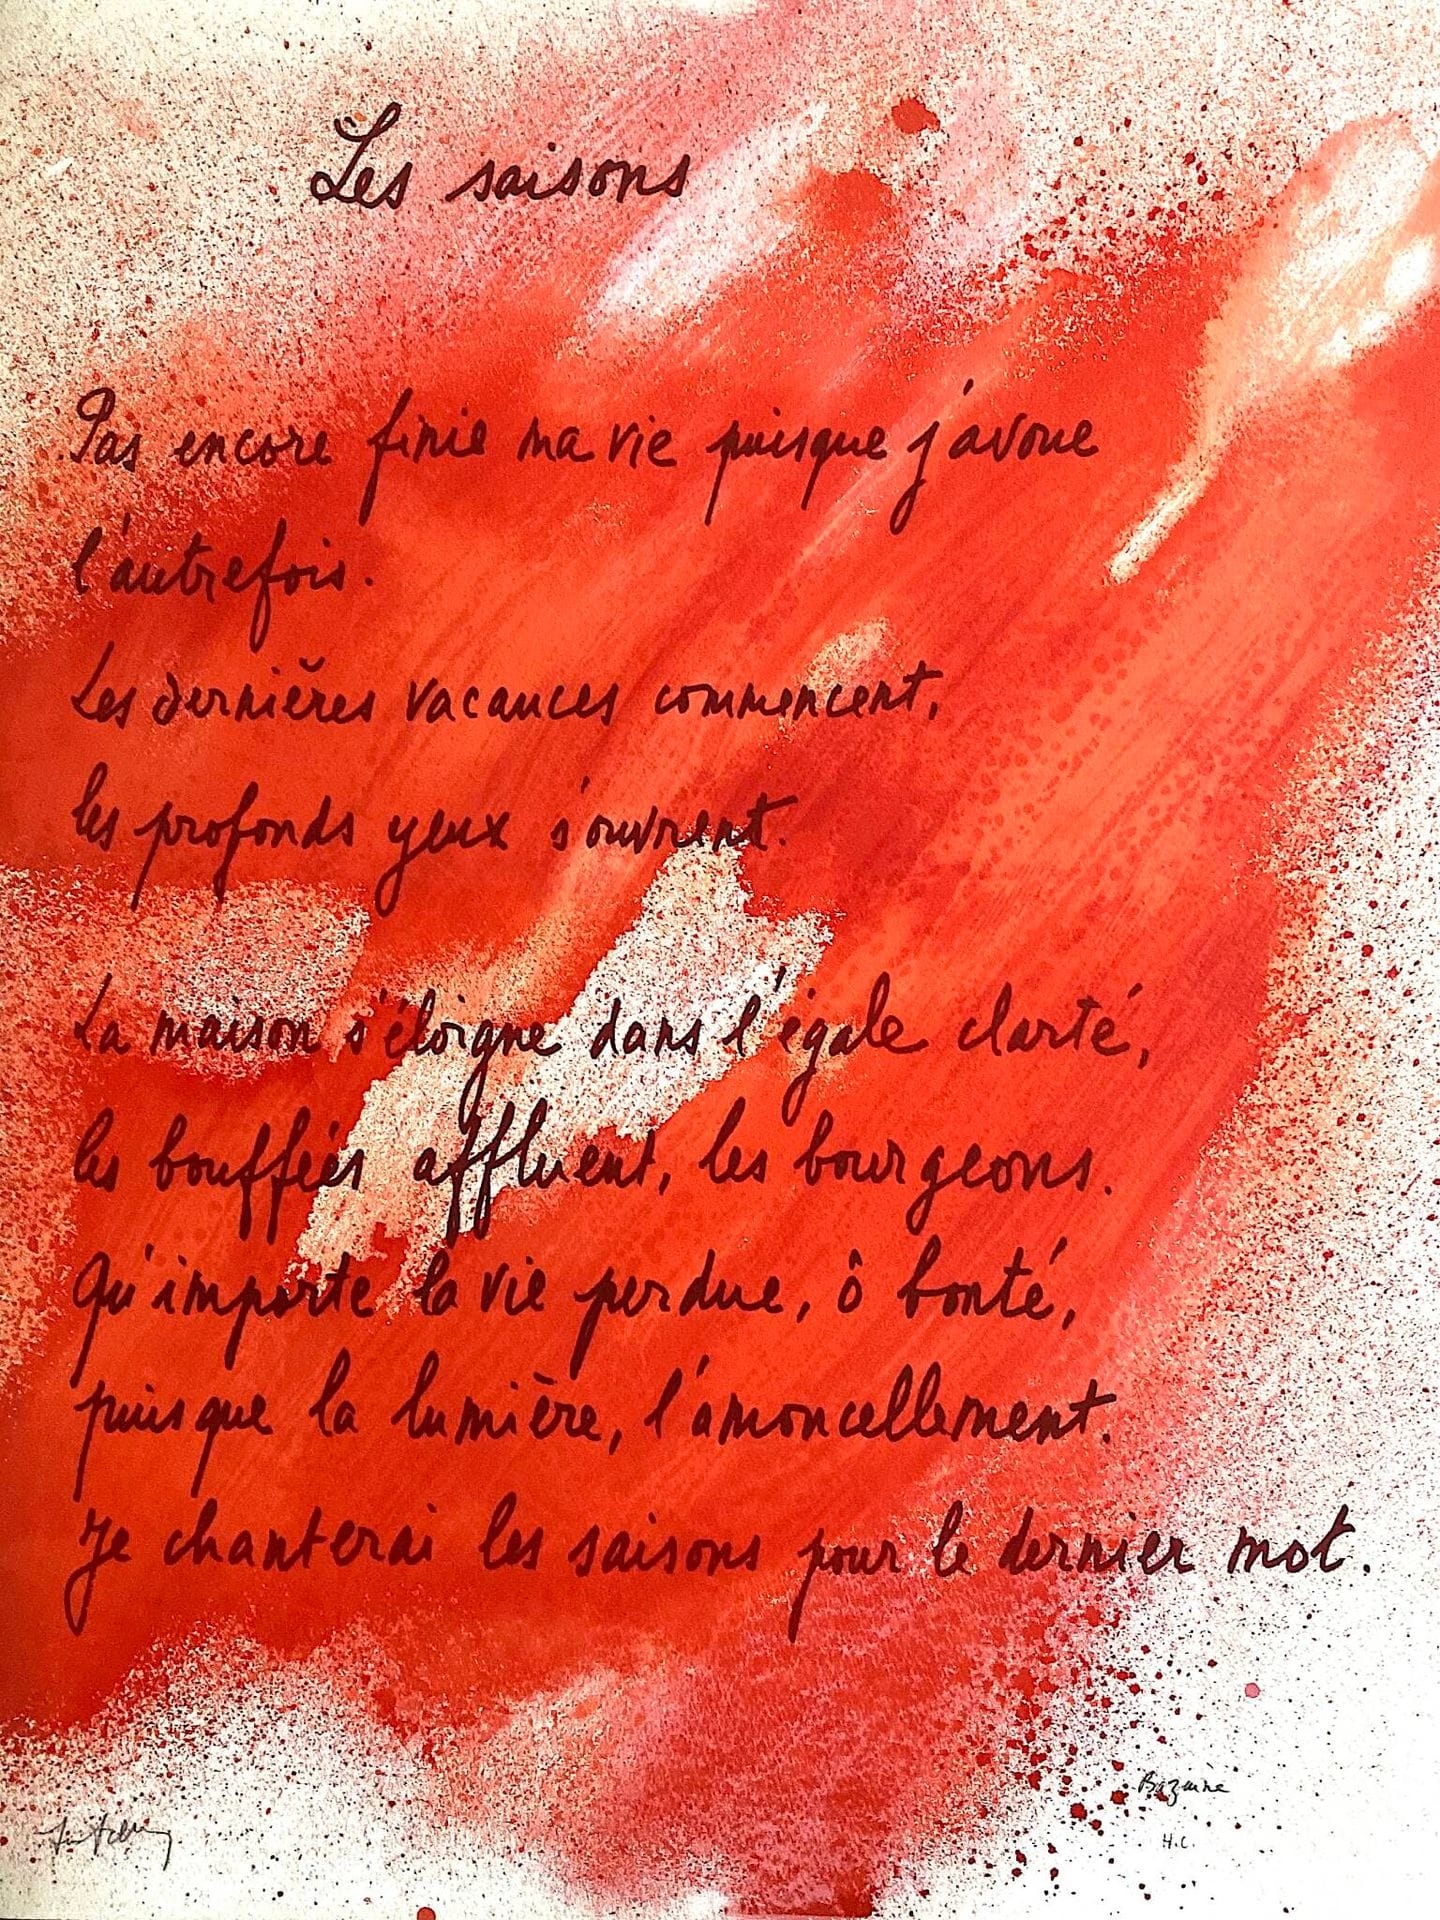 Les saisons
Pas encore finie ma vie puisque j'avoue
l'autrefois.
Les dernières vacances commencent,
les profonds yeux s'ouvrent.
La maison s'éloigne dans l'égale clarté,
les bouffées affluent, les bourgeons.
Qu'importe la vie perdue, ô bonté,
puisque la lumière, l'amoncellement.
Je chanterai les saisons pour le dernier mot.
Bazaine
H.C.